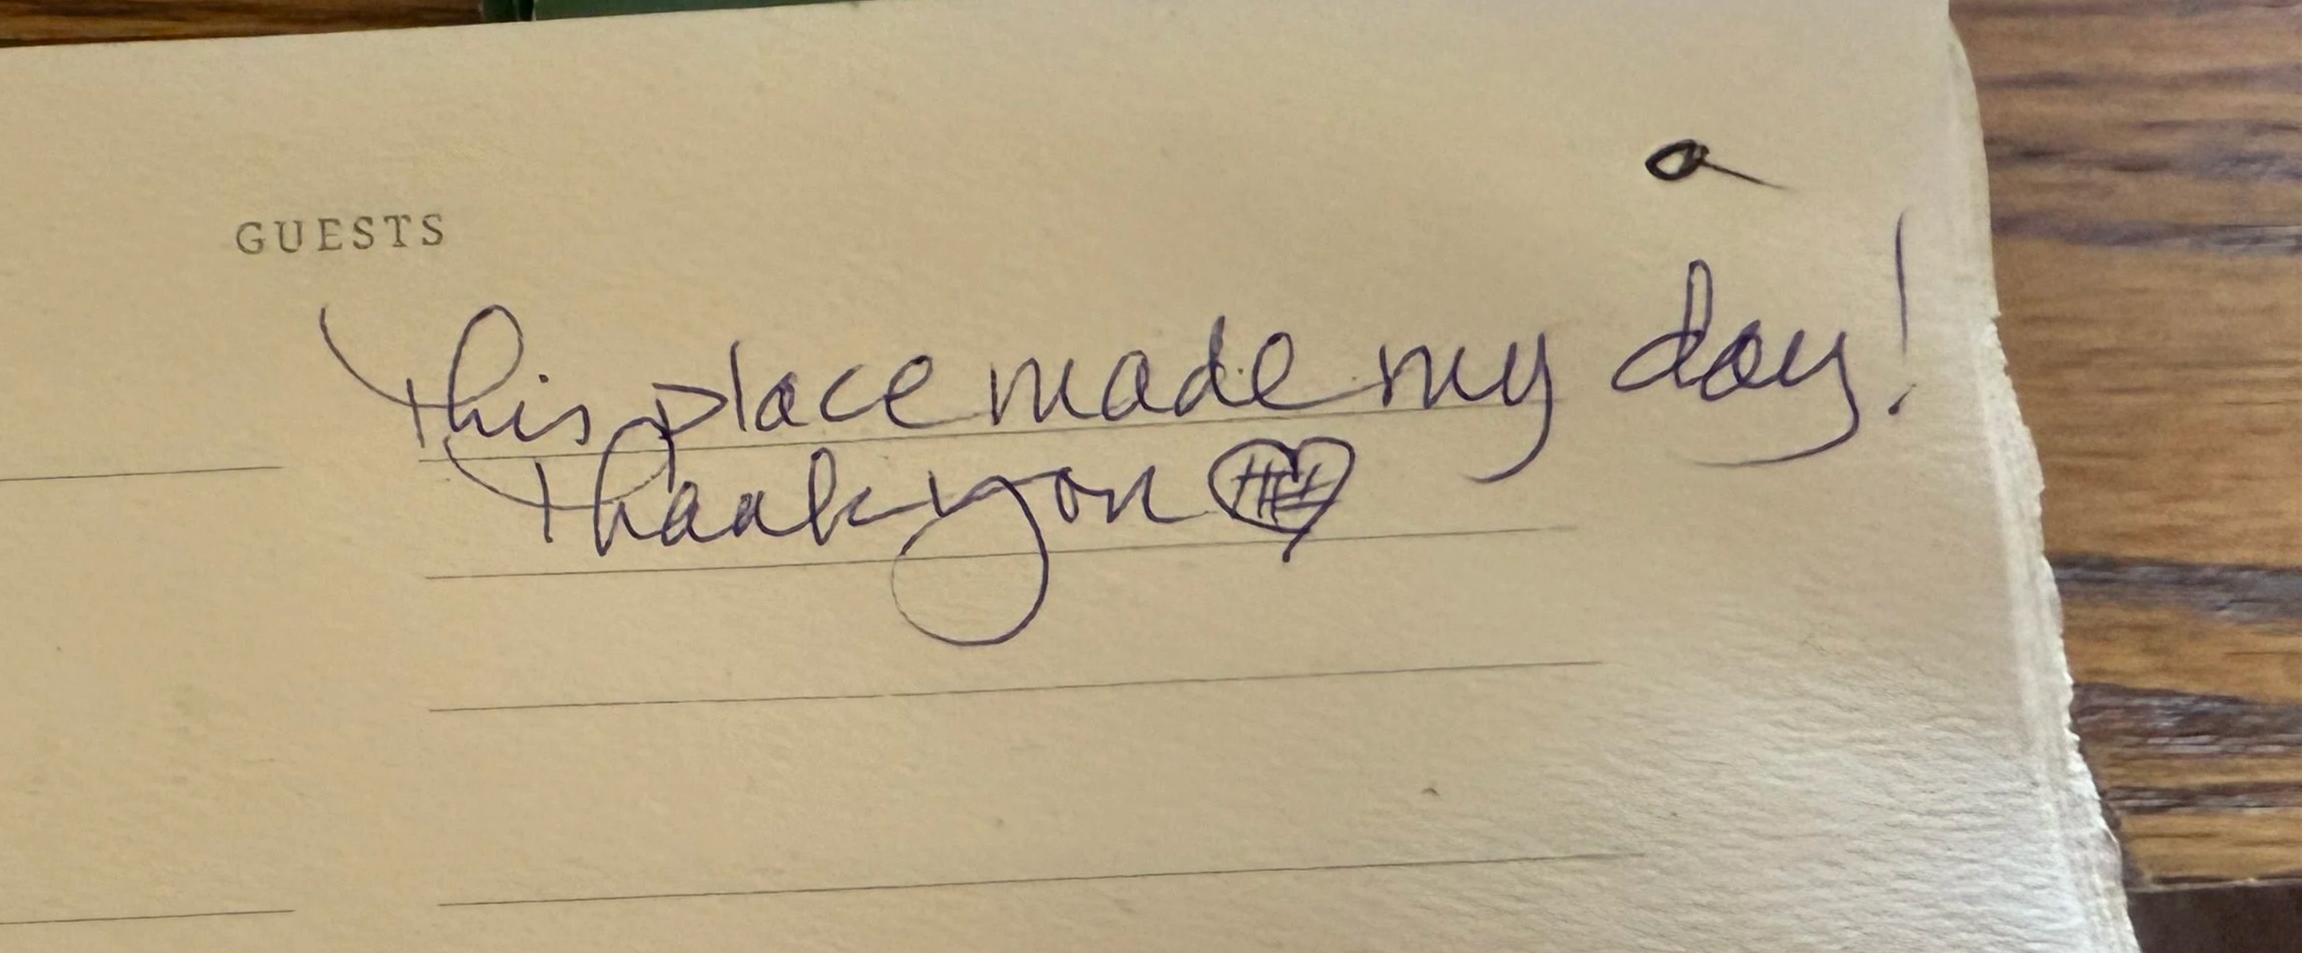 a
GUESTS
This place made my day!
Thank you